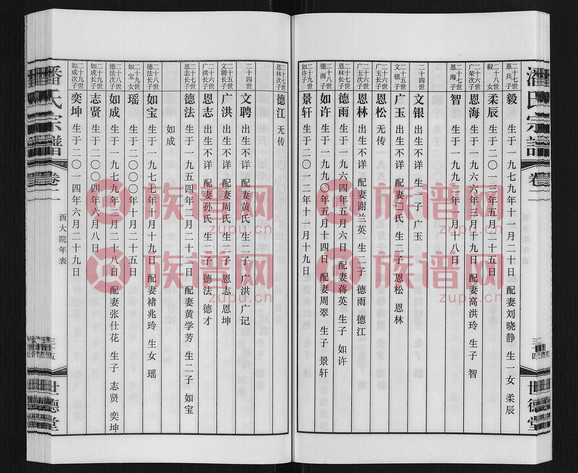 潘氏宗譜
卷
世德堂
二十七世
恩兵子
毅 生于一九七九年十二月二十日 配妻刘晓静 生一女 柔辰
二十八世
毅女
柔辰 生于二〇〇五年二月二十二日
二十六世
恩海 出生不详 配妻高洪玲 生一子 智
二十七世
恩海子
智 生于一九九〇年一月十八日
二十四世
文银 出生不详 生一子 广玉
二十五世
文银子
广玉 出生不详 配妻 氏 生二子 恩松 恩林
二十六世
广玉长子
恩松 无传
二十六世
广玉次子
恩林 出生不详 配妻谢兰英 生二子 德雨 德江
二十七世
恩林长子
德雨 生于一九六四年五月六日 配妻蒋英 生一子 如许
二十八世
德雨子
如许 生于一九九〇年二月六日 配妻周翠 生一子 景轩
二十九世
如许子
景轩 生于二〇一二年十一月十九日
二十七世
恩林次子
德江 无传
二十四世
文聘 出生不详 配妻黄氏 生二子 广洪 广记
二十五世
文聘长子
广洪 出生不详 配妻周氏 生二子 恩志 恩坤
二十六世
广洪长子
恩志 出生不详 配妻孙氏 生二子 德法 德才
二十七世
德法 生于一九五四年二月二十日 配妻黄学芳 生二子 如宝
如成
二十八世
德法长子
如宝 生于一九七七年十月二十一日 配妻褚兆玲 生一女 瑶
二十九世
如宝女
瑶 生于二〇〇〇年十一月十二日
二十八世
德法次子
如成 生于一九七九年十二月二十八日 配妻张仕花 生二子 志贤 奕坤
二十九世
如成长子
志贤 生于二〇〇四年六月八日
二十九世
如成次子
奕坤 生于二〇一四年六月二十九日
潘氏宗譜
卷一
西大院年表
世德堂
族谱网
zupu.cn
族谱网
zupu.cn